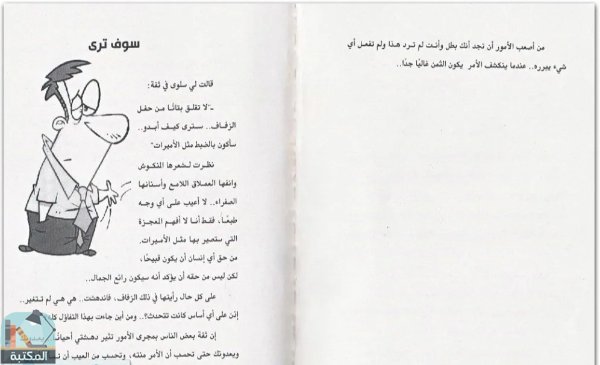 من أصعب الأمور أن تجد أنك بطل وأنت لم ترد هذا ولم تفعل أي
شيء يبرره.. عندما ينكشف الأمر يكون الثمن غاليًا جدًا..
سوف ترى
قالت لي سلوى في ثقة:
ـ"لا تقلق بتاتًا من حفل
الزفاف.. سترى كيف أبدو..
سأكون بالضبط مثل الأميرات"
نظرت لشعرها المنكوش
وانفها العملاق اللامع وأسنانها
الصفراء.. لا أعيب على أي وجه
طبعًا، فقط أنا لا أفهم المعجزة
التي ستصير بها مثل الأميرات.
من حق أي إنسان أن يكون قبيحًا،
لكن ليس من حقه أن يؤكد أنه سيكون رائع الجمال..
على كل حال رأيتها في ذلك الزفاف، فاندهشت.. هي هي لم تتغير..
إذن على أي أساس كانت تتحدث؟.. ومن أين جاءت بهذا التفاؤل كله
إن ثقة بعض الناس بمجرى الأمور تثير دهشتي أحيانًا..
ويعدونك حتى تحسب أن الأمر منته، وتحسب من العيب أن
المكتبة